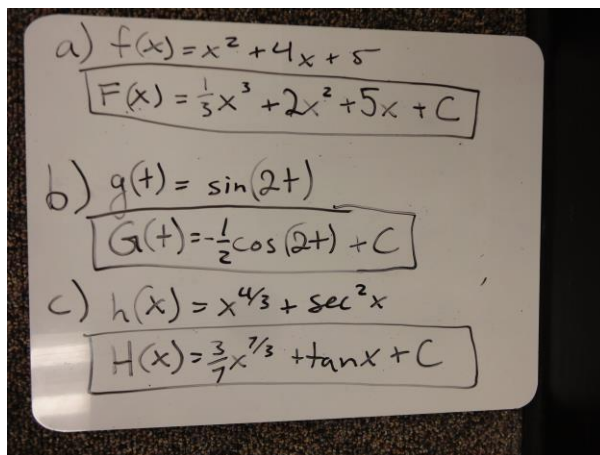 a) f(x) = x² + 4x + 5
F(x) = 1/3 x³ + 2x² + 5x + C
b) g(t) = sin(2t)
G(t) = -1/2 cos(2t) + C
c) h(x) = x^4/3 + sec²x
H(x) = 3/7 x^7/3 + tanx + C